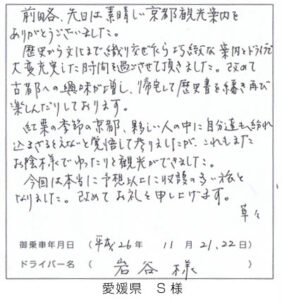 前略、先日は素晴しい京都観光案内を
ありがとうございました。
歴史から文化まで織り交ぜたうち解た案内とドライブで
大変充実した時間を過ごさせて頂きました。改めて
古都への興味が増し、帰宅して歴史書を繙き再び
楽しんだりしております。
紅葉の季節の京都、夥しい人の中に自分達も紛れ
込まざるをえないと覚悟して参りましたが、これもまた
お陰様でゆったりと観光ができました。
今回は本当に予想以上に収穫の多い旅と
なりました。改めてお礼を申し上げます。
草々
御乗車年月日 (平成26年 11月21,22日)
ドライバー名 ( 岩谷様 )
愛媛県 S様